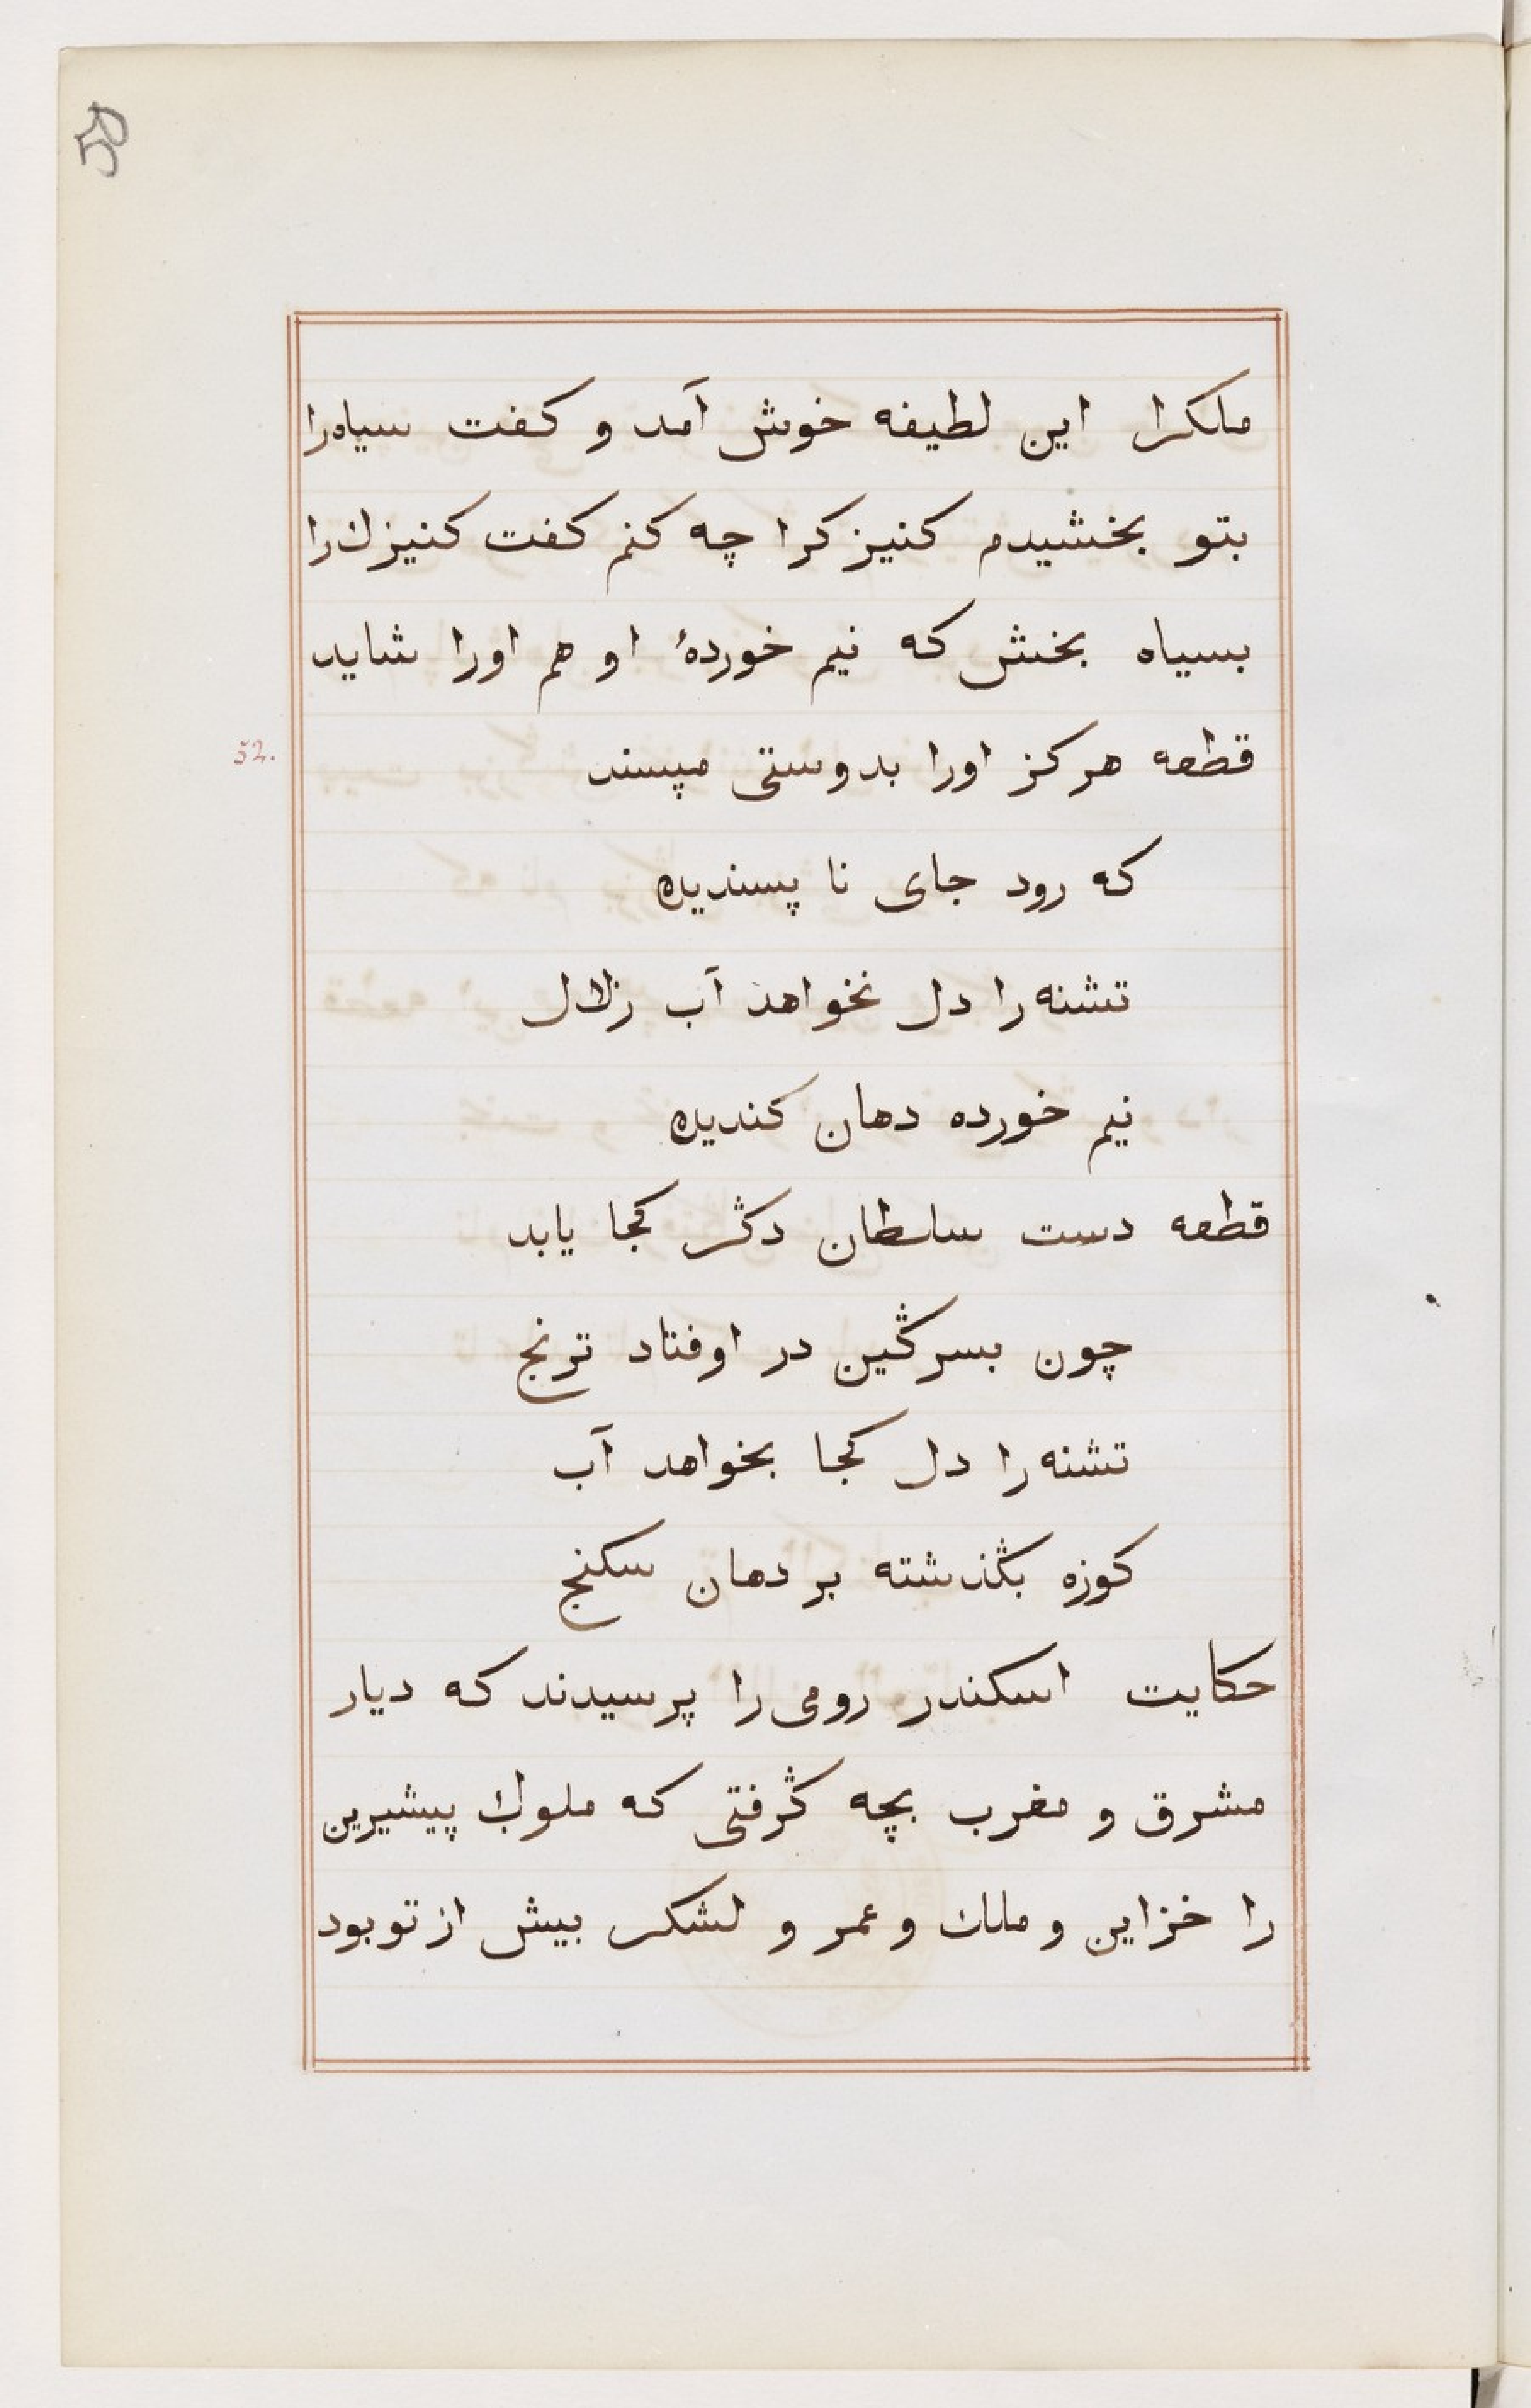 50
ملکرا این لطیفه خوش آمد و کفت سیاه‌را
بتو بخشیدم کنیزکرا چه کنم کفت کنیزك‌را
بسیاه بخش که نیم خوردهٔ او هم اورا شاید
52.
قطعه هرکز اورا بدوستی مپسند
که رود جای نا پسندیده
تشنه‌را دل نخواهد آب زلال
نیم خورده دهان کندیده
قطعه دست سلطان دگر کجا یابد
چون بسرگین در اوفتاد ترنج
تشنه‌را دل کجا بخواهد آب
کوزه بگذشته بر دهان سکنج
حکایت اسکندر رومی را پرسیدند که دیار
مشرق و مغرب بچه گرفتی که ملوك پیشیرین
را خزاین و ملك و عمر و لشکر بیش از تو بود